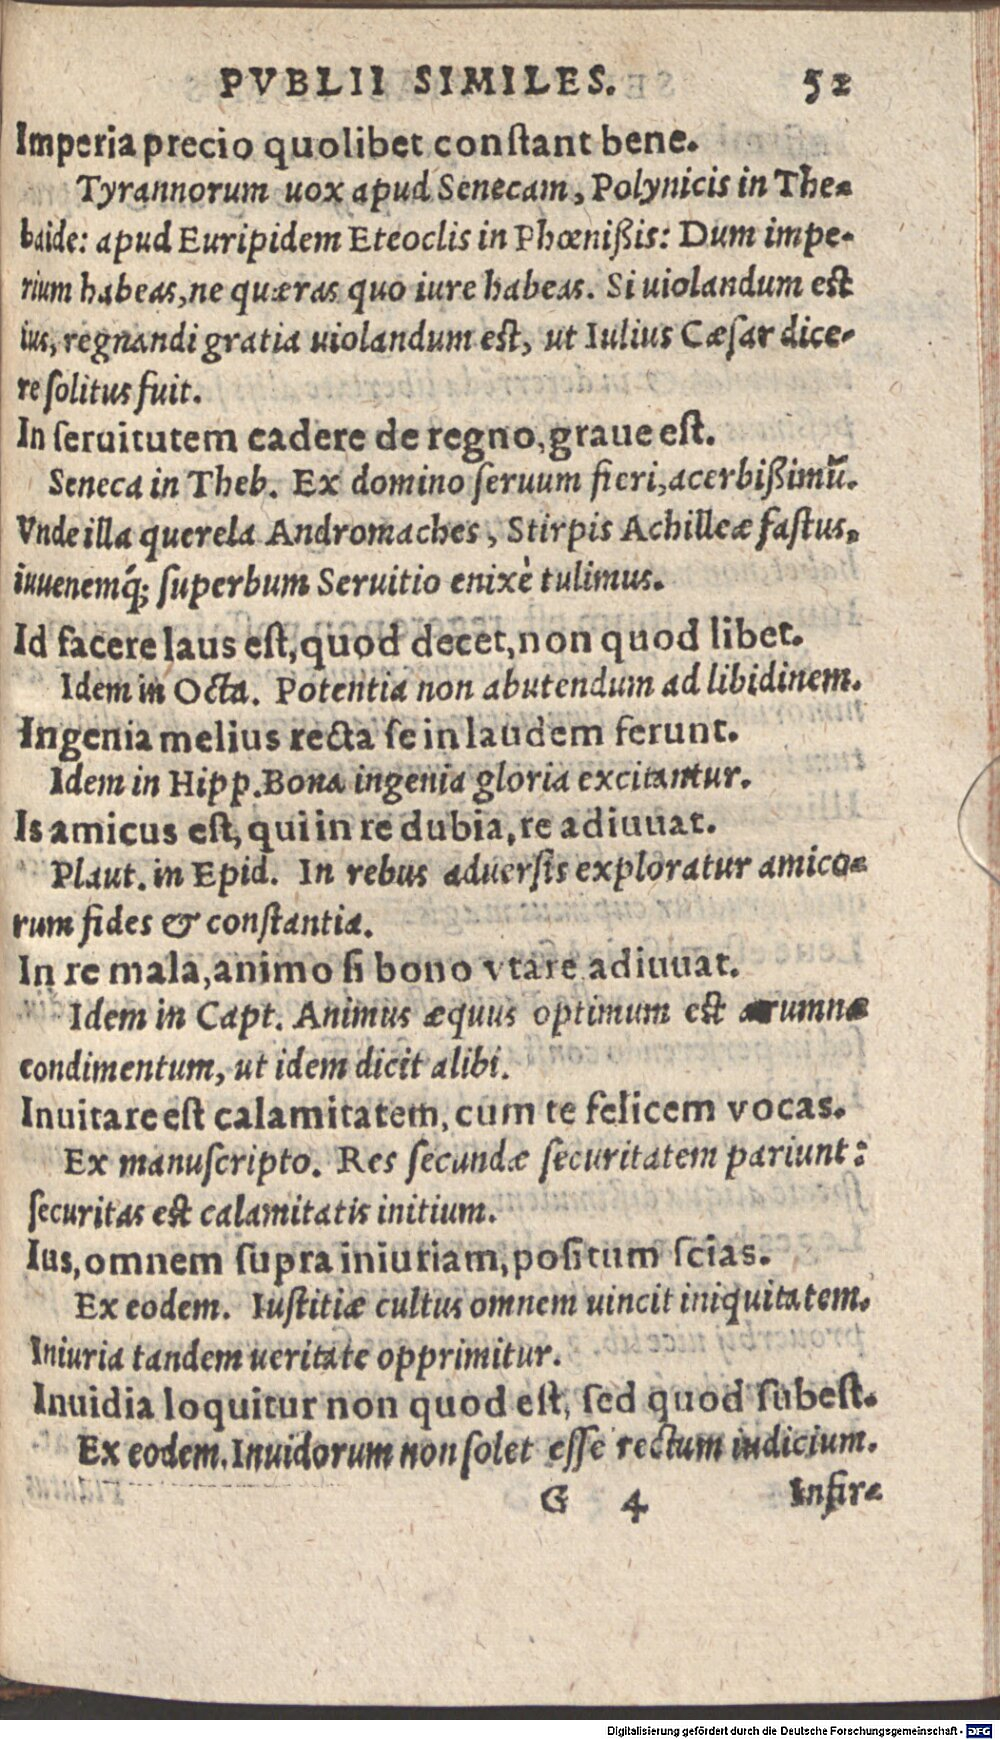 PVBLII SIMILES. 52
Imperia precio quolibet conſtant bene.
Tyrannorum uox apud Senecam, Polynicis in The-
baide: apud Euripidem Eteoclis in Phœnißis: Dum impe-
rium habeas, ne quæras quo iure habeas. Si uiolandum est
ius, regnandi gratia uiolandum est, ut Iulius Cæſar dice-
re ſolitus fuit.
In ſeruitutem cadere de regno, graue eſt.
Seneca in Theb. Ex domino ſeruum fieri, acerbißimũ.
Vnde illa querela Andromaches, Stirpis Achilleæ faſtus,
iuuenemq́; ſuperbum Seruitio enixè tulimus.
Id facere laus eſt, quod decet, non quod libet.
Idem in Octa. Potentia non abutendum ad libidinem.
Ingenia melius recta ſe in laudem ferunt.
Idem in Hipp. Bona ingenia gloria excitantur.
Is amicus eſt, qui in re dubia, re adiuuat.
Plaut. in Epid. In rebus aduerſis exploratur amico-
rum fides & conſtantia.
In re mala, animo ſi bono vtare adiuuat.
Idem in Capt. Animus æquus optimum est ærumnæ
condimentum, ut idem dicit alibi.
Inuitare eſt calamitatem, cum te felicem vocas.
Ex manuſcripto. Res ſecundæ ſecuritatem pariunt:
ſecuritas est calamitatis initium.
Ius, omnem ſupra iniuriam, poſitum ſcias.
Ex eodem. Iuſtitiæ cultus omnem uincit iniquitatem.
Iniuria tandem ueritate opprimitur.
Inuidia loquitur non quod eſt, ſed quod ſubeſt.
Ex eodem. Inuidorum non ſolet eſſe rectum iudicium.
G 4 Infir-
Digitalisierung gefördert durch die Deutsche Forschungsgemeinschaft - DFG